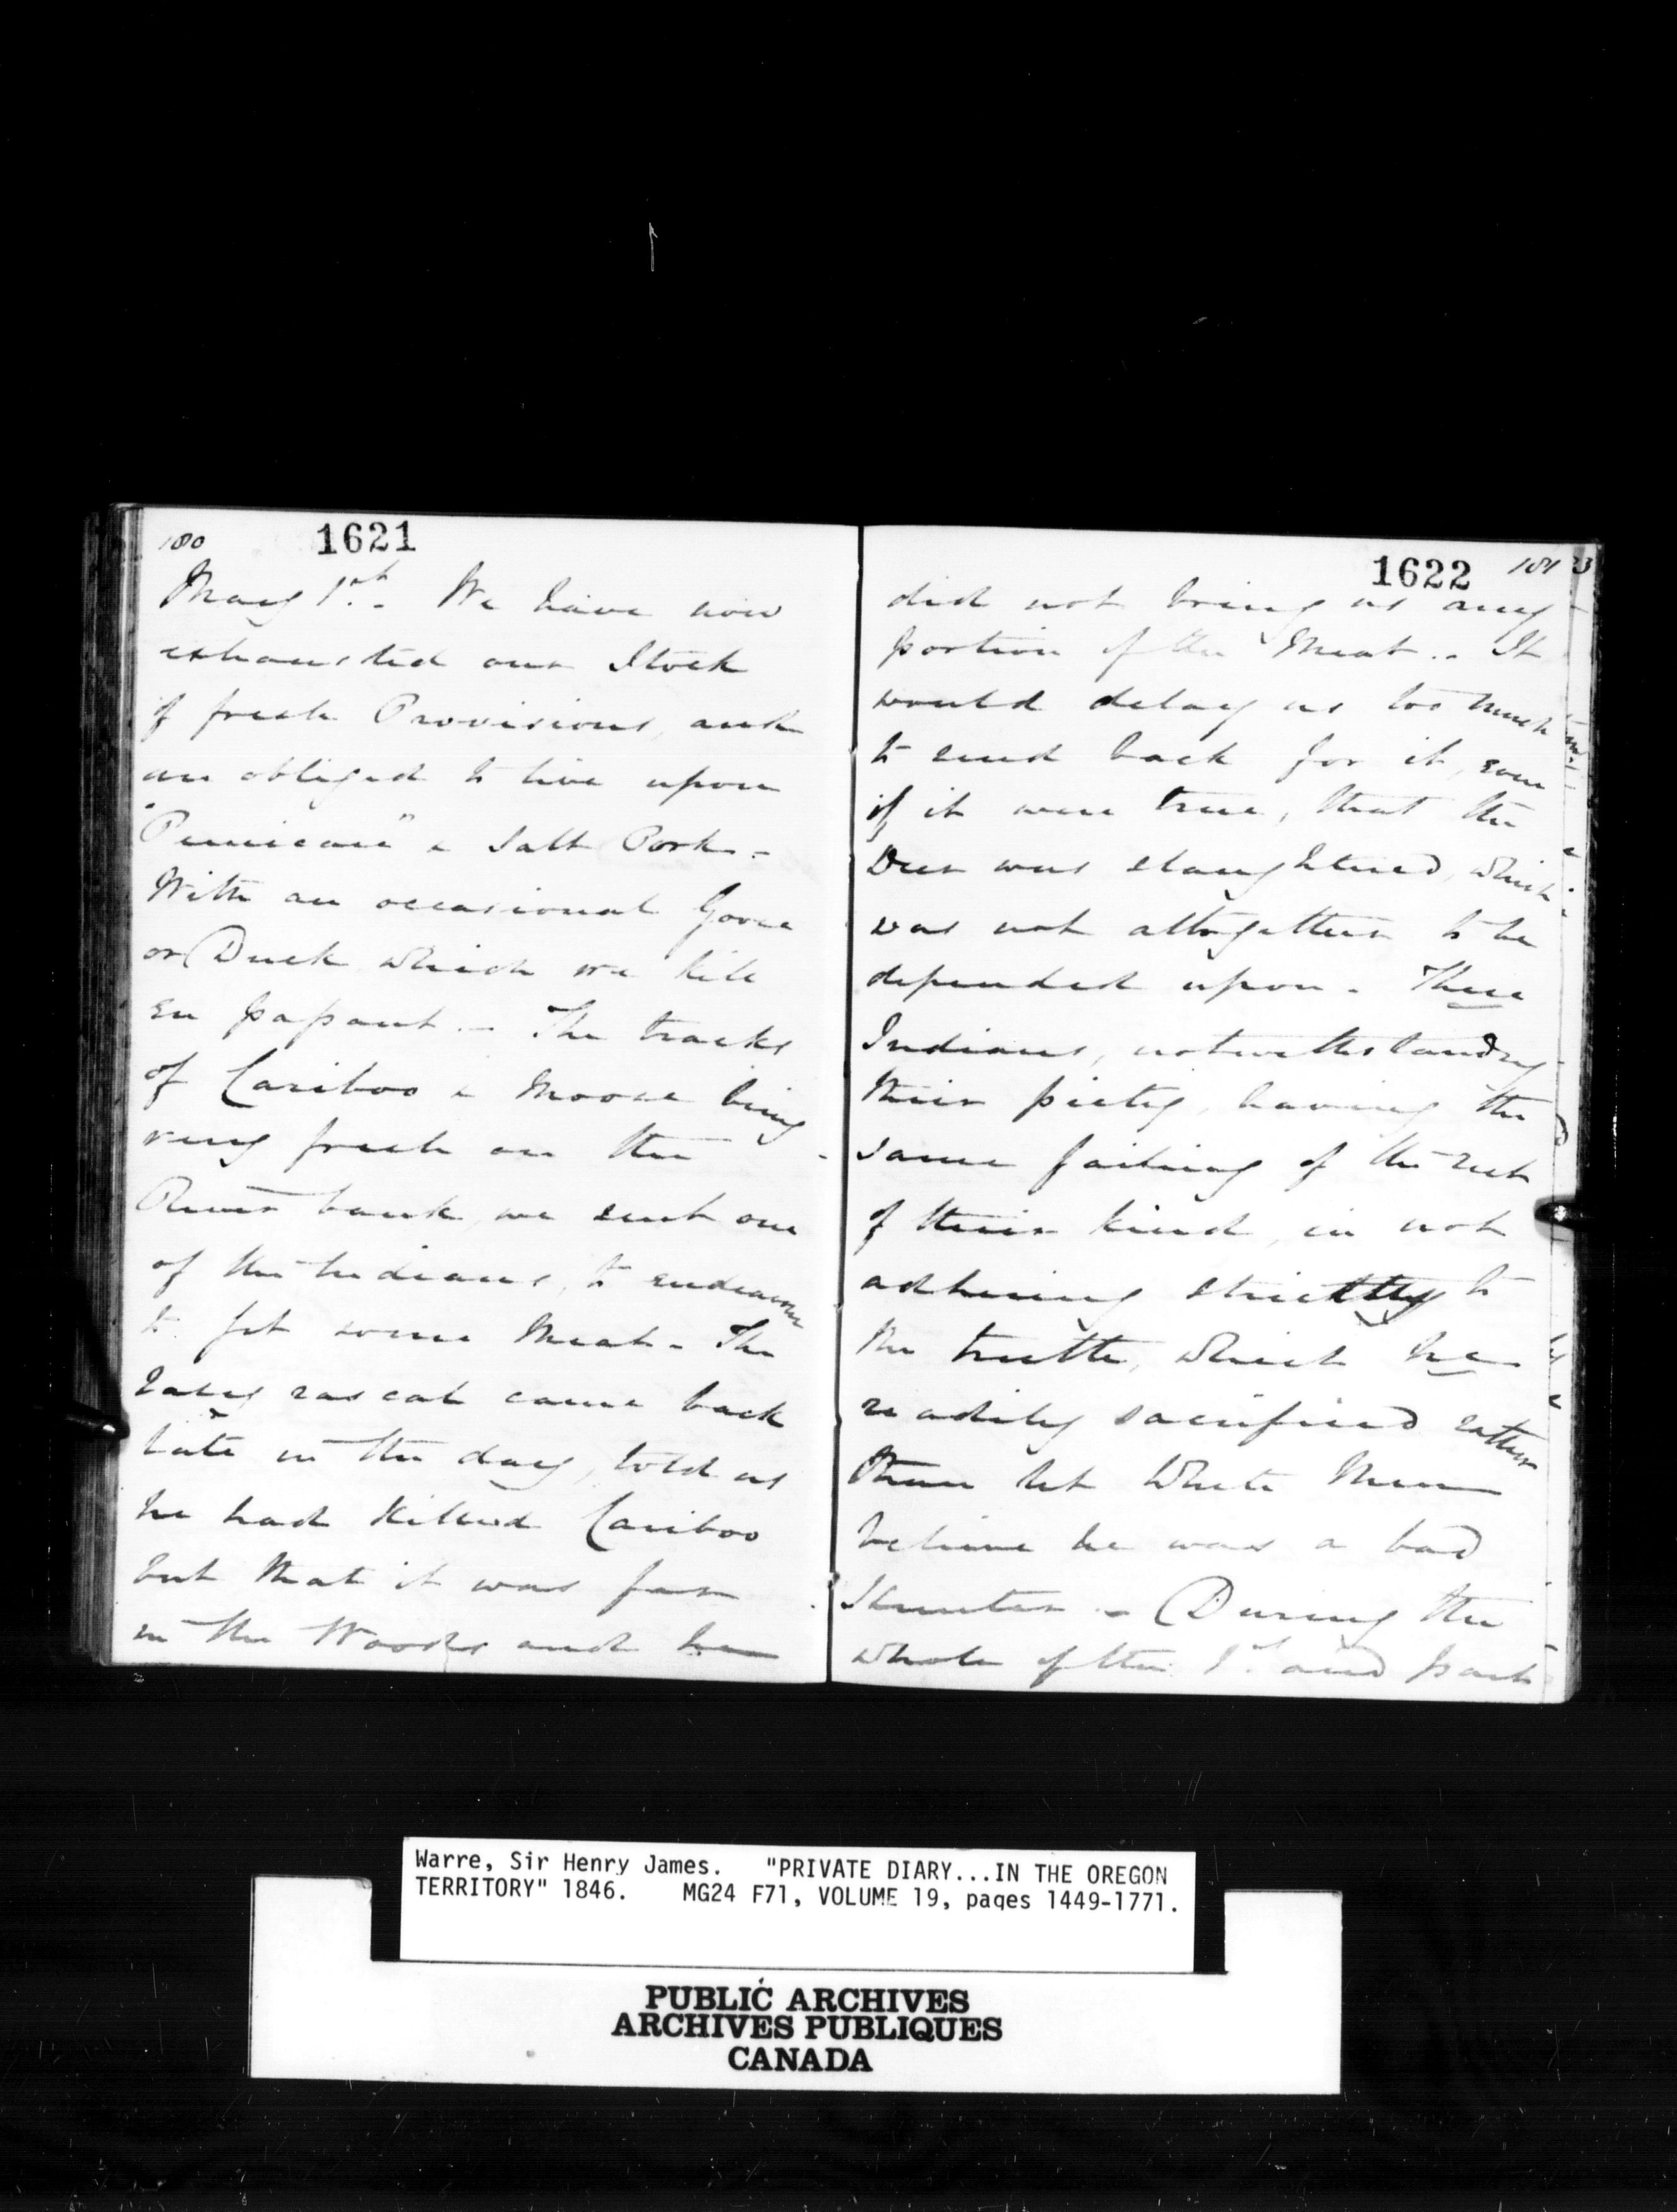 180 1621
May 1st. We have now
exhausted our Stock
of fresh Provisions, and
are obliged to live upon
"Pemican" & Salt Pork -
With an occasional Goose
or Duck which we kill
en passant. - The tracks
of Cariboo & Moose being
very fresh on the
River bank, we sent one
of the Indians, to endeavour
to get some Meat - The
lazy rascal came back
late in the day, told us
he had killed Cariboo
but that it was far
in the Woods and he
1622 181
did not bring us any
portion of the Meat. - It
would delay us too much
to send back for it, even
if it were true, that the
Deer was slaughtered, which
was not altogether to be
depended upon. These
Indians, notwithstanding
their piety, having the
same failing of the rest
of their kind, in not
adhering strictly to
the truth, which he
readily sacrificed rather
than let White Men
believe he was a bad
Hunter - During the
whole of the 1st and part
Warre, Sir Henry James. "PRIVATE DIARY...IN THE OREGON
TERRITORY" 1846. MG24 F71, VOLUME 19, pages 1449-1771.
PUBLIC ARCHIVES
ARCHIVES PUBLIQUES
CANADA